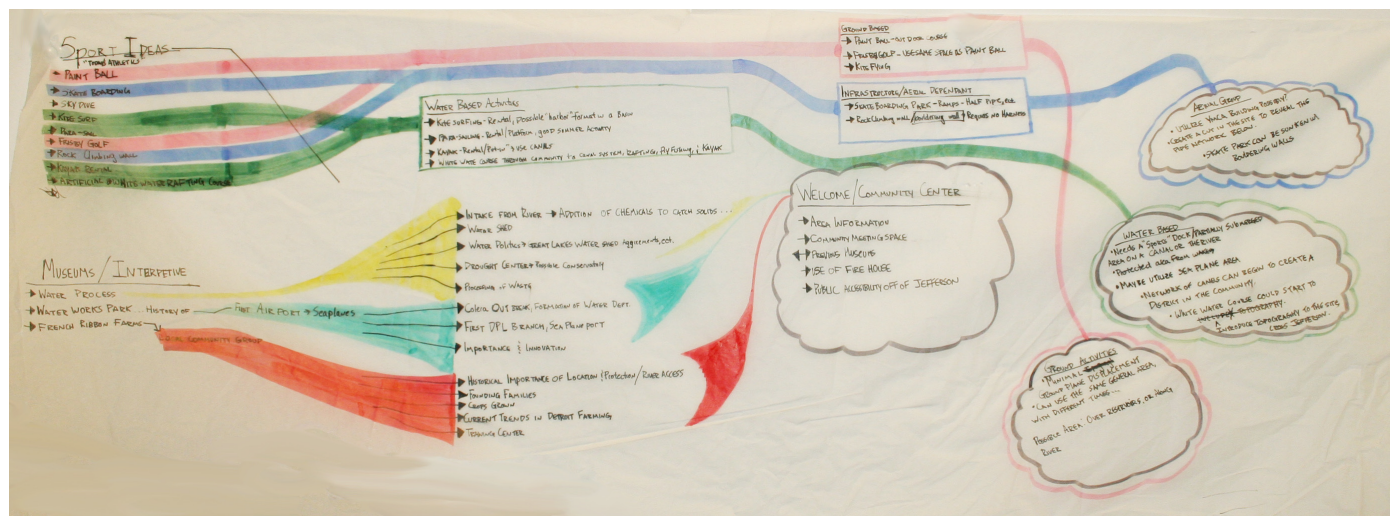 Sport Ideas
PAINT BALL
SKATE BOARDING
SKY DIVE
KITE SURF
PARA-SAIL
FRISBY GOLF
ROCK CLIMBING WALL
KAYAK RENTAL
ARTIFICIAL WHITE WATER RAFTING COURSE
WATER BASED ACTIVITIES
KITE SURFING - RENTAL, POSSIBLE
PARA-SAILING - RENTAL/PLATFORM, GOOD SUMMER ACTIVITY
KAYAK - RENTAL USE CANALS
WHITE WATE COURSE THROUGH COMMUNITY TO CANAL SYSTEM, RAFTING, FLY FISHING, & KAYAK
GROUND BASED
PAINT BALL - OUTDOOR COURSE
FRISBY GOLF - USE SAME SPACE AS PAINT BALL
KITE FLYING
INFRASTRUCTURE/AERIAL DEPENDANT
SKATEBOARDING PARK - RAMPS - HALF PIPE, ect.
ROCK CLIMBING WALL/BOULDERING WALL REQUIRES NO HARNESS
AERIAL GROUP
• UTILIZE YMCA BUILDING POSSIBLY?
• CREATE A CUT IN THE SITE TO REVEAL THE
PIPE NETWORK BELOW.
• SKATE PARK CAN BE SUNKEN W/
BOULDERING WALLS
WATER BASED
• NEEDS A "SPORTS" DOCK/PARTIALLY SUBMERGED
AREA ON A CANAL OR THE RIVER
• PROTECTED AREA FROM WAKES
• MAYBE UTILIZE SEA PLANE AREA
• NETWORK OF CANALS CAN BEGIN TO CREATE A
DISTRICT IN THE COMMUNITY.
• WHITE WATER COURSE COULD START TO
TOPOGRAPHY.
INTRODUCE TOPOGRAPHY TO THE SITE
CROSS JEFFERSON.
GROUND ACTIVITIES
• MINIMAL
GROUND PLANE DISPLACEMENT
• CAN USE THE SAME GENERAL AREA
WITH DIFFERENT TIMES...
POSSIBLE AREA: OVER RESERVOIRS, OR ALONG
RIVER
WELCOME/COMMUNITY CENTER
AREA INFORMATION
COMMUNITY MEETING SPACE
PREVIOUS MUSEUMS
USE OF FIRE HOUSE
PUBLIC ACCESSIBILITY OFF OF JEFFERSON
MUSEUMS/INTERPETIVE
WATER PROCESS
WATER WORKS PARK... HISTORY OF FIRST AIRPORT → SEAPLANES
FRENCH RIBBON FARMS
LOCAL COMMUNITY GROUP
INTAKE FROM RIVER → ADDITION OF CHEMICALS TO CATCH SOLIDS...
WATER SHED
WATER POLITICS → GREAT LAKES WATER SHED AGGREMENTS, ect.
DROUGHT CENTER → POSSIBLE CONSERVATORY
POURING OF WASTE
COLERA OUT BREAK, FORMATION OF WATER DEPT.
FIRST DPL BRANCH, SEA PLANE PORT
IMPORTANCE & INNOVATION
HISTORICAL IMPORTANCE OF LOCATION (PROTECTION/RIVER ACCESS
FOUNDING FAMILIES
CROPS GROWN
CURRENT TRENDS IN DETROIT FARMING
TRAINING CENTER